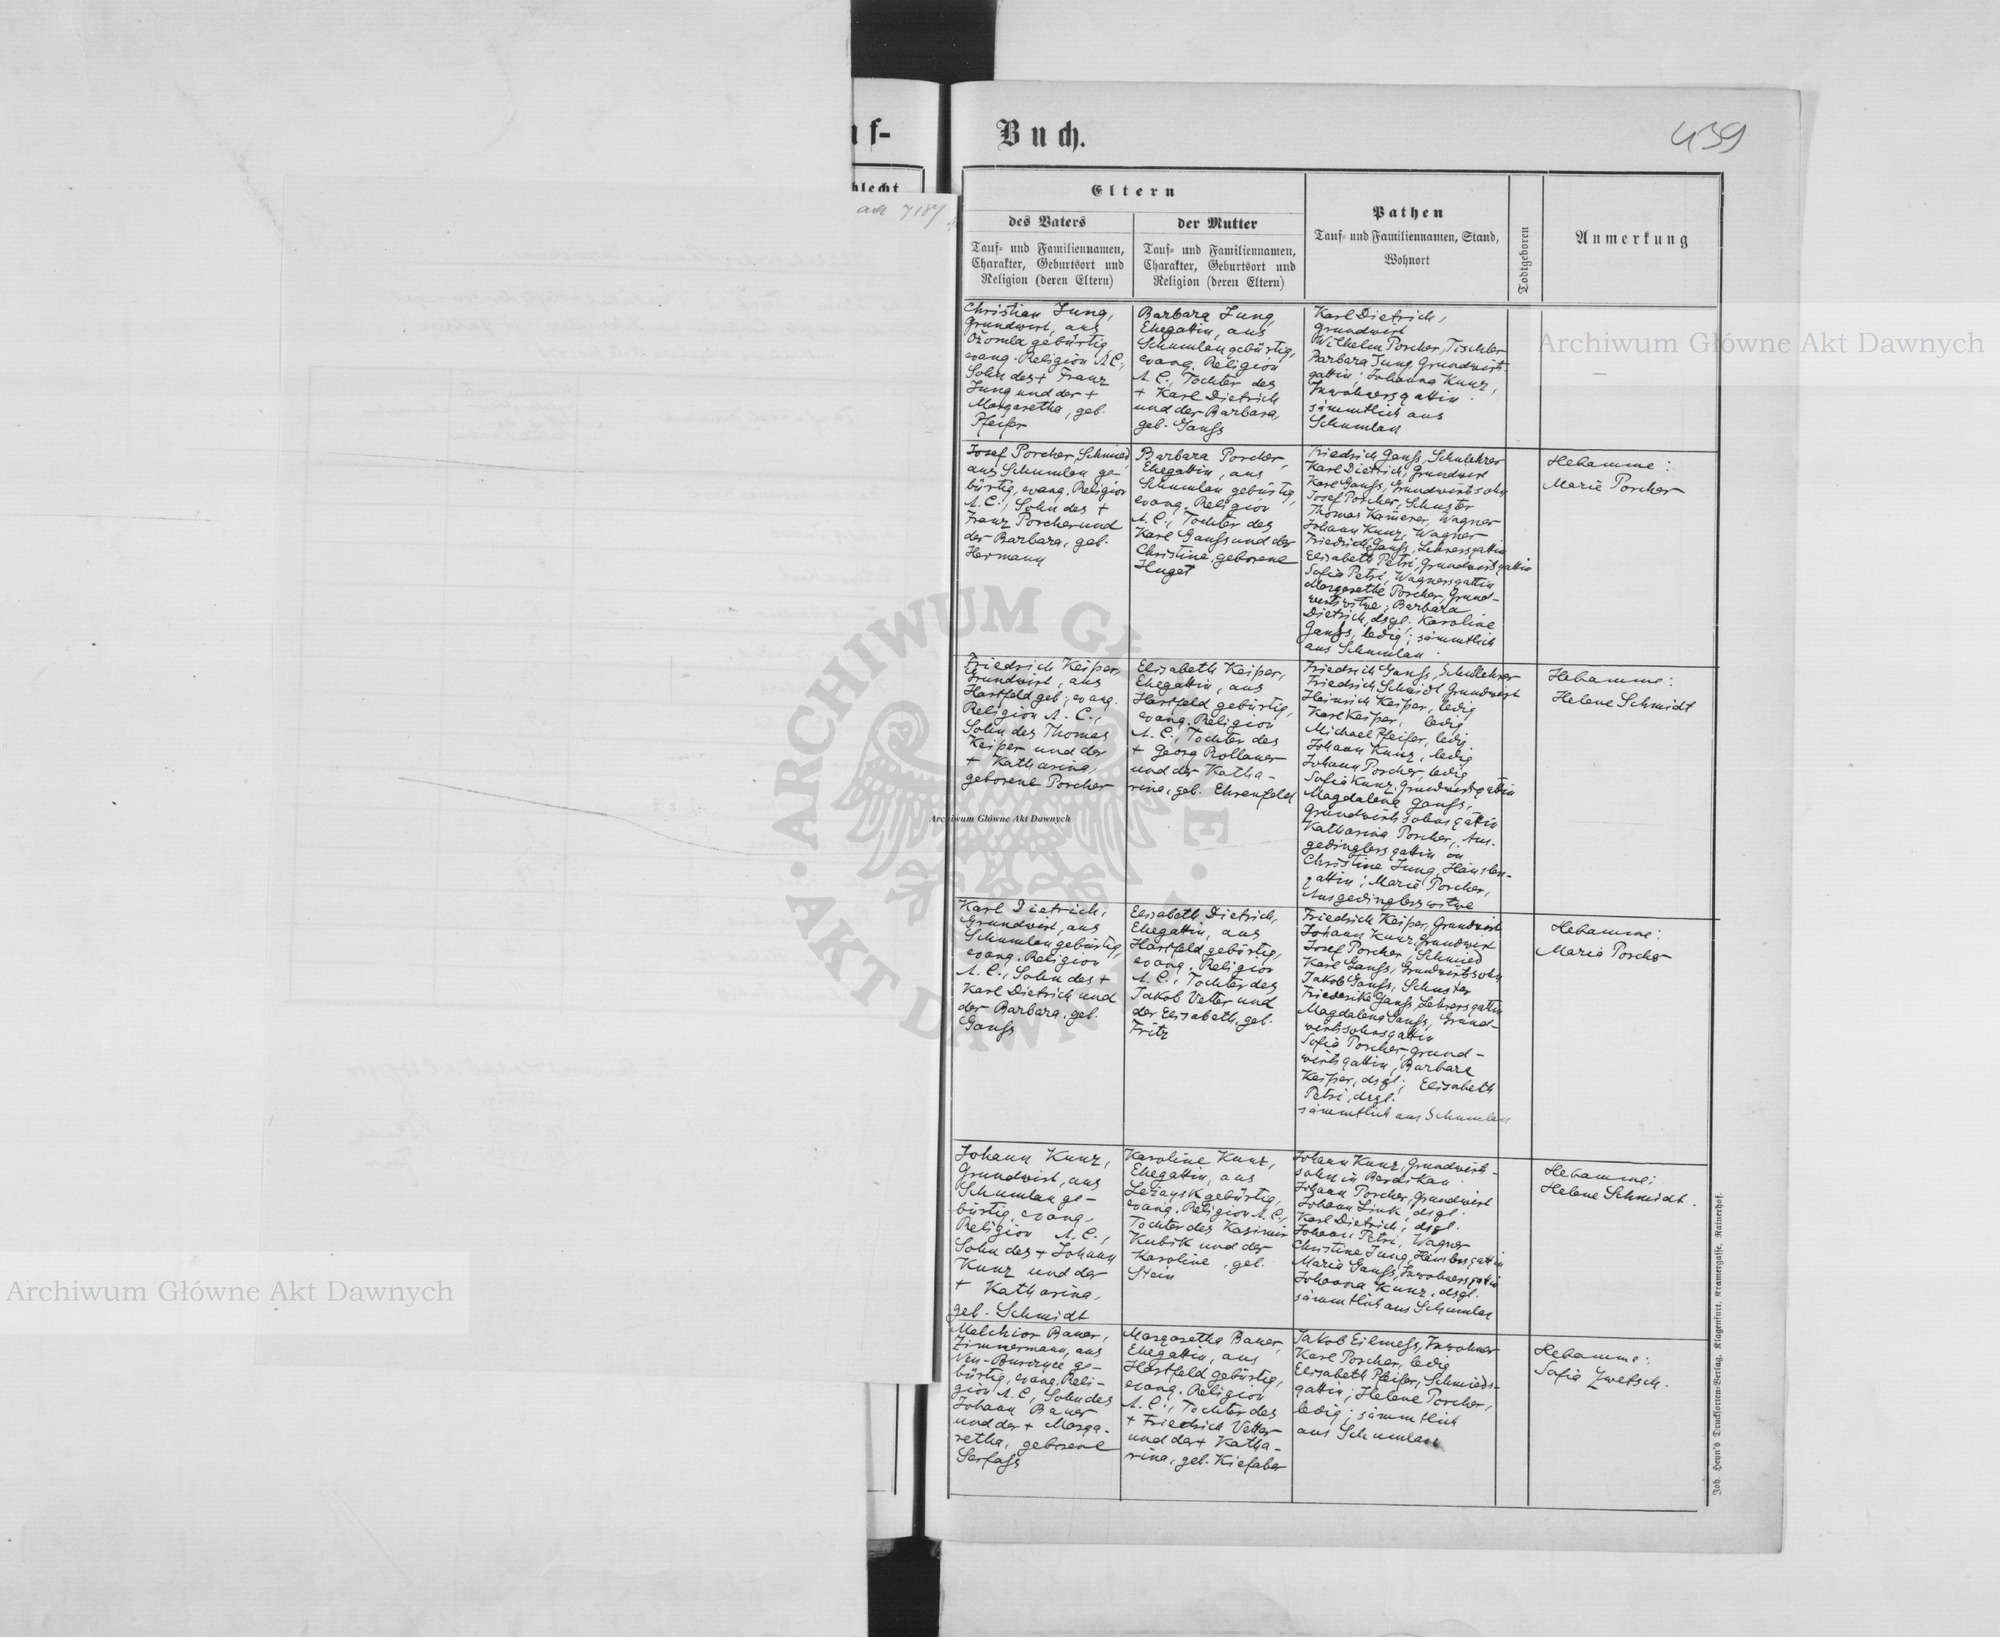 uf-
Buch.
439
hlecht
ad 7187
Eltern
des Vaters
Tauf- und Familiennamen,
Charakter, Geburtsort und
Religion (deren Eltern)
der Mutter
Tauf- und Familiennamen,
Charakter, Geburtsort und
Religion (deren Eltern)
Pathen
Tauf- und Familiennamen, Stand,
Wohnort
Todtgeboren
Anmerkung
Christian Jung,
Grundwirt, aus
Ożomla gebürtig,
evang. Religion A.C.,
Sohn des + Franz
Jung und der +
Margaretha, geb.
Pfeifer
Barbara Jung,
Ehegattin, aus
Schumlau gebürtig,
evang. Religion
A.C., Tochter des
+ Karl Dietrich
und der Barbara,
geb. Gauss
Karl Dietrich,
Grundwirt
Wilhelm Porcher, Tischler
Barbara Jung, Grundwirts-
gattin; Johanna Kunz,
Inwohnersgattin.
sämmtlich aus
Schumlau
Josef Porcher, Schmied,
aus Schumlau ge-
bürtig, evang. Religion
A.C., Sohn des +
Franz Porcher und
der Barbara, geb.
Hermann
Barbara Porcher,
Ehegattin, aus
Schumlau gebürtig,
evang. Religion
A.C., Tochter des
Karl Gauss und der
Christine, geborene
Huget
Friedrich Gauss, Schullehrer
Karl Dietrich, Grundwirt
Karl Gauss, Grundwirtssohn
Josef Porcher, Schuster
Thomas Kamerer, Wagner
Johann Kunz, Wagner
Gauss, Lehrersgattin
Elisabeth Petri, Grundwirtsgattin
Sofie Petri, Wagnersgattin
Margarethe Porcher, Grund-
wirtswitwe; Barbara
Dietrich, dsgl. Karoline
Gauss, ledig; sämmtlich
aus Schumlau.
Hebamme:
Marie Porcher
Friedrich Keiper,
Grundwirt, aus
Hartfeld geb., evang.
Religion A.C.,
Sohn des Thomas
Keiper und der
+ Katharina,
geborene Porcher
Elisabeth Keiper,
Ehegattin, aus
Hartfeld gebürtig,
evang. Religion
A.C., Tochter des
+ Georg Rollauer
und der Katha-
rina, geb. Ehrenfeld
Friedrich Gauss, Schullehrer
Friedrich Schmidt, Grundwirt
Heinrich Keiper, ledig
Karl Keiper, ledig
Michael Pfeifer, ledig
Johann Kunz, ledig
Johann Porcher, ledig
Sofie Kunz, Grundwirtsgattin
Magdalene Gauss,
Grundwirtssohnsgattin
Katharina Porcher, Aus-
gedinglersgattin
Christine Jung, Häuslers-
gattin; Marie Porcher,
Ausgedinglerswitwe
Hebamme:
Helene Schmidt
Karl Dietrich,
Grundwirt, aus
Schumlau gebürtig,
evang. Religion
A.C., Sohn des +
Karl Dietrich und
der Barbara, geb.
Gauss
Elisabeth Dietrich,
Ehegattin, aus
Hartfeld gebürtig,
evang. Religion
A.C., Tochter des
Jakob Vetter und
der Elisabeth, geb.
Fritz
Friedrich Keiper, Grundwirt
Johann Kunz, Grundwirt
Josef Porcher, Schmied
Karl Gauss, Grundwirtssohn
Jakob Gauss, Schuster
Friederike Gauss, Lehrersgattin
Magdalena Gauss, Grund-
wirtssohnsgattin
Sofie Porcher, Grund-
wirtsgattin, Barbara
Keiper, dsgl; Elisabeth
Petri, dsgl.
sämmtlich aus Schumlau
Hebamme:
Marie Porcher
Johann Kunz,
Grundwirt, aus
Schumlau ge-
bürtig, evang.
Religion A.C.,
Sohn des + Johann
Kunz und der
+ Katharina,
geb. Schmidt
Karoline Kunz,
Ehegattin, aus
Leżaysk gebürtig,
evang. Religion A.C.,
Tochter des Kasimir
Kubik und der
Karoline, geb.
Stein
Johann Kunz, Grundwirts-
sohn in Berdikau.
Johann Porcher, Grundwirt
Johann Link, dsgl.
Karl Dietrich, dsgl.
Johann Petri, Wagner
Christine Jung, Häuslersgattin
Marie Gauss, Inwohnersgattin
Johanna Kunz, dsgl.
sämmtlich aus Schumlau
Hebamme:
Helene Schmidt.
Melchior Bauer,
Zimmermann, aus
Neu-Burczyce ge-
bürtig, evang. Reli-
gion A.C., Sohn des
Johann Bauer
und der + Marga-
retha, geborene
Serfass
Margaretha Bauer,
Ehegattin, aus
Hartfeld gebürtig,
evang. Religion
A.C., Tochter des
+ Friedrich Vetter
und der + Katha-
rina, geb. Kiefaber
Jakob Eilmess, Inwohner
Karl Porcher, ledig
Elisabeth Pfeifer, Schmieds-
gattin; Helene Porcher,
ledig; sämmtlich
aus Schumlau
Hebamme:
Sofie Zwetsch.
Joh. Heyn's Drucksorten-Verlag, Klagenfurt, Kramergasse, Rainerhof.
Archiwum Główne Akt Dawnych
Archiwum Główne Akt Dawnych
Archiwum Główne Akt Dawnych
ARCHIWUM GŁÓWNE
AKT DAWNYCH